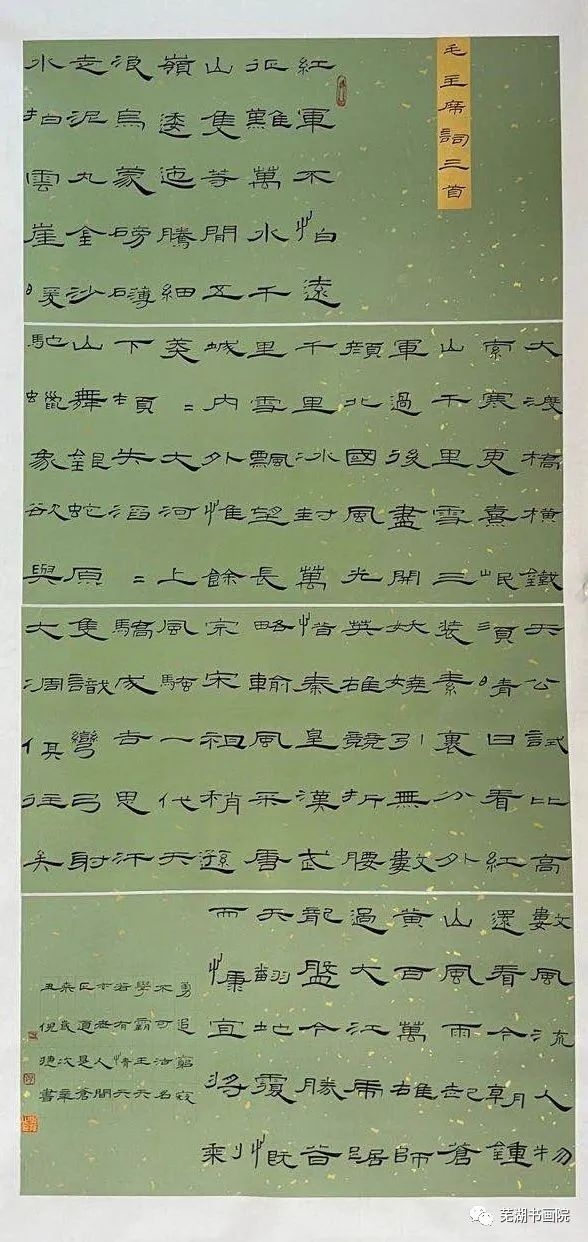 毛主席詞三首
紅軍不怕遠
征難萬水千
山隻等閒五
嶺逶迤騰細
浪烏蒙磅礴
走泥丸金沙
水拍雲崖暖
大渡橋橫鐵
索寒更熹岷
山千里雪三
軍過後盡開
顏北國風光
千里冰封萬
里雪飄望長
城内外惟餘
莽=大河上
下頓失滔=
山舞銀蛇原
馳蠟象欲與
天公試比高
須晴日看紅
裝素裹分外
妖嬈引無數
英雄競折腰
惜秦皇漢武
略輸風采唐
宗宋祖稍遜
風騷一代天
驕成吉思汗
隻識彎弓射
大凋俱往矣
數風流人物
還看今朝鍾
山風雨起蒼
黃百萬雄師
過大江虎踞
龍盤今勝昔
天翻地覆慨
而慷宜將剩
勇追窮寇
不可沽名
學霸王天
若有情天
亦老人間
正道是滄
桑歲次辛
丑倪捷書
芜湖书画院